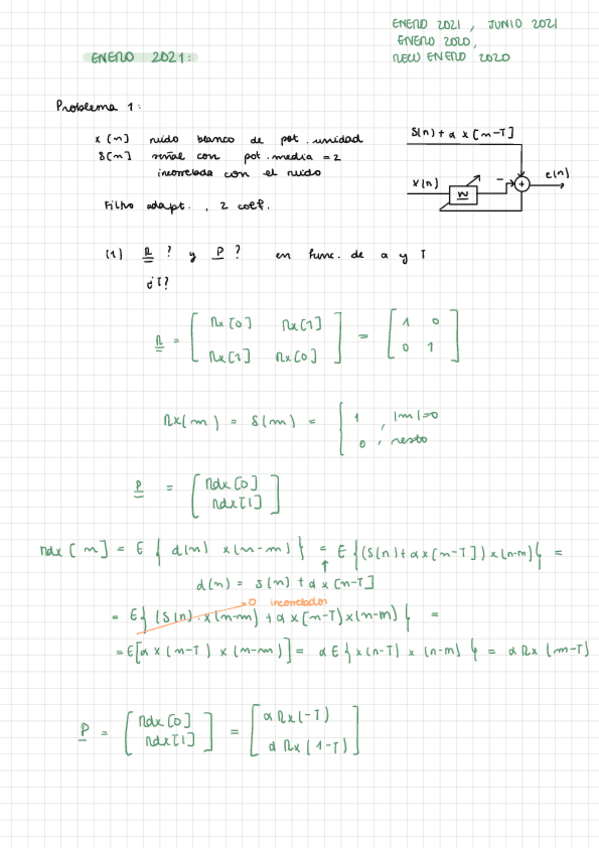 ENERO 2021, JUNIO 2021
ENERO 2020,
NEW ENERO 2020
ENERO 2021:
Problema 1:
x[n] ruido blanco de pot. unidad
s[n] señal con pot. media = 2
incorrelada con el ruido
Filtro adapt., 2 coef.
s(n) + a x[n-T]
x(n)
w
-
+
e(n)
(1) R? y P? en func. de a y T
¿T?
R = [ rx[0] rx[1] ] = [ 1 0 ]
[ rx[1] rx[0] ] [ 0 1 ]
rx(m) = δ(m) = { 1 , |m|=0
0 , resto
P = [ rdx[0] ]
[ rdx[1] ]
rdx[m] = E { d(n) x(n-m) } = E {(s(n) + a x[n-T]) x(n-m)} =
d(n) = s(n) + a x[n-T]
0 incorrelados
= E{ (s(n) · x(n-m) + a x(n-T) x(n-m) } =
= E[a x(n-T) x(n-m)] = a E{ x(n-T) x(n-m) } = a rx(m-T)
P = [ rdx[0] ] = [ a rx(-T) ]
[ rdx[1] ] [ a rx(1-T) ]